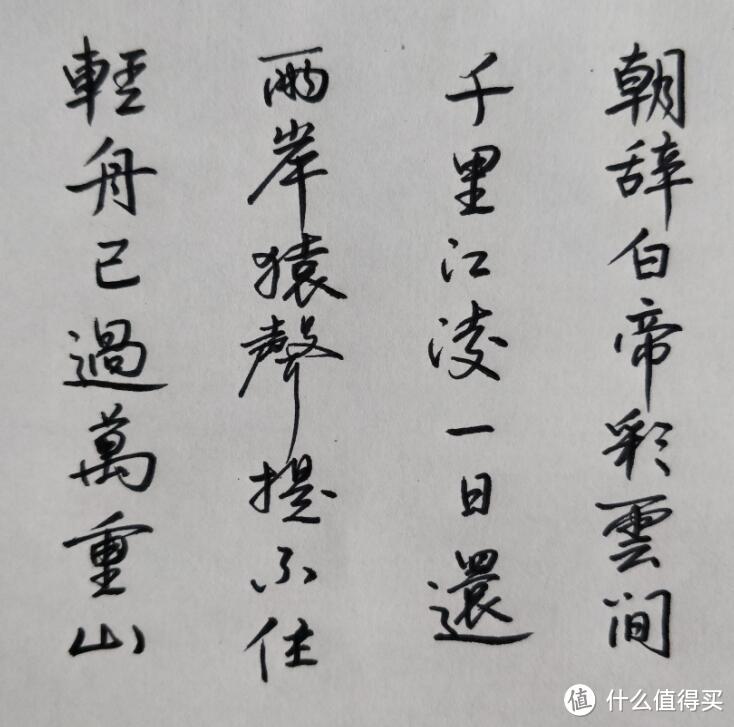 朝辞白帝彩雲间
千里江凌一日還
兩岸猿聲提不住
輕舟已過萬重山
值 什么值得买